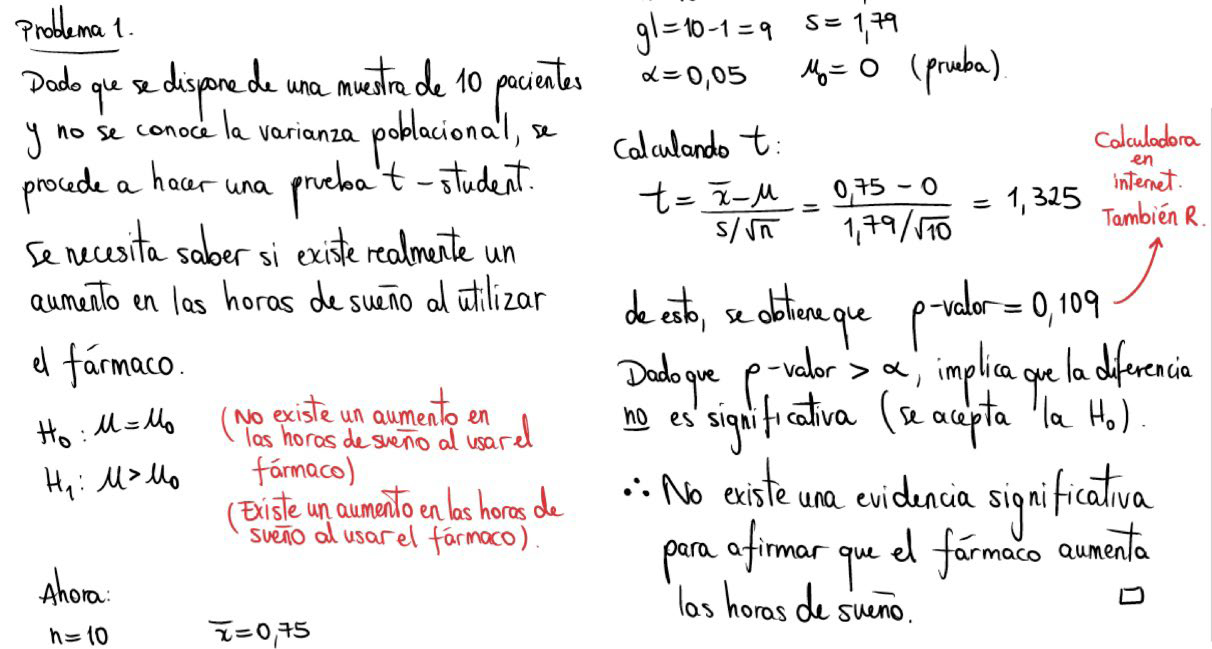 Problema 1.
Dado que se dispone de una muestra de 10 pacientes
y no se conoce la varianza poblacional, se
procede a hacer una prueba t-student.
Se necesita saber si existe realmente un
aumento en las horas de sueño al utilizar
el fármaco.
H₀: μ = μ₀ (No existe un aumento en
las horas de sueño al usar el
fármaco)
H₁: μ > μ₀
(Existe un aumento en las horas de
sueño al usar el fármaco).
Ahora:
n = 10 x̄ = 0,75
gl = 10 - 1 = 9 s = 1,79
α = 0,05 μ₀ = 0 (prueba).
Calculando t:
t = (x̄ - μ) / (s/√n) = (0,75 - 0) / (1,79/√10) = 1,325
Calculadora
en
internet.
También R.
de esto, se obtiene que p-valor = 0,109
Dado que p-valor > α, implica que la diferencia
no es significativa (se acepta la H₀).
∴ No existe una evidencia significativa
para afirmar que el fármaco aumenta
las horas de sueño. □